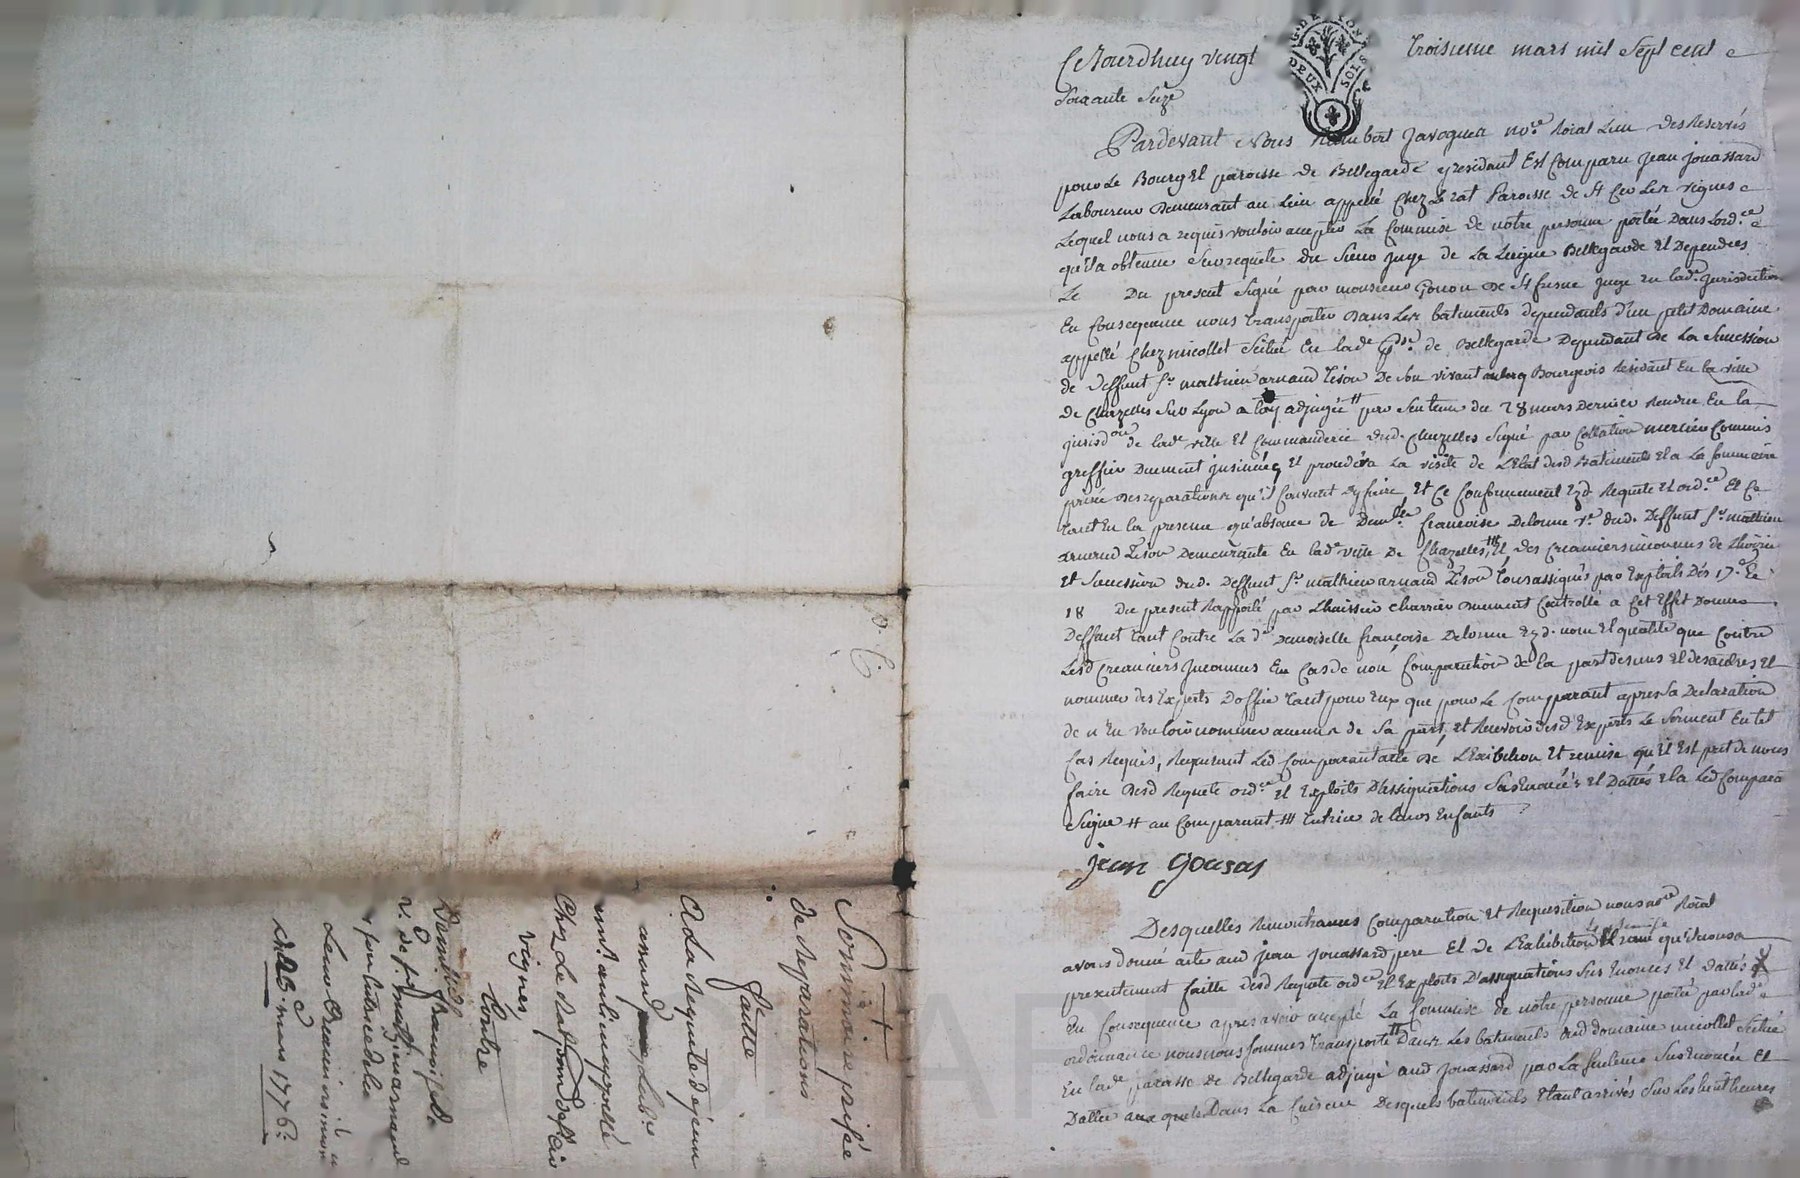 Ce Jourdhuy vingt troisieme mars mil Sept cent
Soixante Seize
GNE LYON
DEUX SOLS
Pardevant Nous Rambert Javogues no.re Roial Lieu des Reservés
pour Le Bourg Et paroisse de Bellegarde y residant Est Comparu Jean jouassard
Laboureur demeurant au Lieu appellé Chez Le rat Paroisse de St Les vignes
Lequel nous a requis vouloir accepter La Commise de notre personne portée Dans Lord.ce
qu'il a obtenue Sur requete du Sieur juge de La Liegue Bellegarde Et Dependces
Le Du present Signé par monsieur Gonon de St fresne juge En lad.e jurisdiction
En Consequence nous transporter dans Les batiments dependants d'un petit Domaine
appellé Chez micollet Scitué En lad.e de Bellegarde Dependant de La Succession
de deffunt S.r mathieu arnaud Tison De Son vivant Bourgeois Residant En la ville
de Chazelles Sur Lyon a Luy adjugée # par Sentence du 28 mars Dernier Rendue En la
jurisd.on de lad.e ville Et Commanderie dud. Chazelles Signé par Collation mercier Commis
greffier Duement insinuée Et proceder a La visite de L'Etat desd Batiments Et a La Sommaire
prisée des reparations qu'il Convient dy faire Et Ce Conformement auxd Requete Et ord.ce Et Ce
tant En la presence qu'absence de Dem.lle francoise Delorme v.e dud. Deffunt S.r mathieu
arnaud Tison Demeurante En lad.e ville de Chazelles, Et des Creanciers inconnus de L'hoirie
Et Succession dud. Deffunt S.r mathieu arnaud Tison tous assignés par Exploits Des 17.e Et
18 du present Rapporté par L'huissier Charrier duement Controllé a Cet Effet Donner
Deffaut tant Contre La d.e Demoiselle francoise Delorme nom Et qualité que Contre
Lesd Creanciers Inconnus En Cas de non Comparution de la part des uns Et des autres Et
nommer des Experts D'office tant pour Eux que pour Le Comparant apres Sa Declaration
de n'En vouloir nommer aucuns de Sa part, Et Recevoir desd Experts Le Serment En tel
Cas Requis, Requerant Led Comparant acte de L'Exibition Et remise qu'il Est pret de nous
faire desd Requete ord.ce Et Exploits D'assignations Sus Enoncés Et Dattés Et a Led Comparant
Signé # au Comparant ## tutrice de leurs Enfants
jean Gousas
Desquelles Remontrances Comparution Et Requisition nous no.re Roial
avons donné acte aud jean jouassard pere Et de L'Exhibition qu'il nous a
presentement faitte desd Requete ord.ce Et Exploits D'assignations Sus Enoncés Et dattés
En Consequence apres avoir accepté La Commise de notre personne portée par lad.e
ordonnance nous nous Sommes transporté Dans Les batiments dud domaine micollet Scitué
En lad.e paroisse de Bellegarde adjugé aud jouassard par La Sentence Sus Enoncée Et
Dattée Dans La Cuisine Desquels batiments Etant arrivés Sur Les huit heures
Sommaire prisée
de Reparations
faitte
A La Requete de jean
Lab.r
au lieu appellé
Chez Le Rat
vignes,
Contre
Demoiselle francoise
v. de S.r math. arnaud
tutrice de
Leurs Creanciers
Du 23. mars 1776.